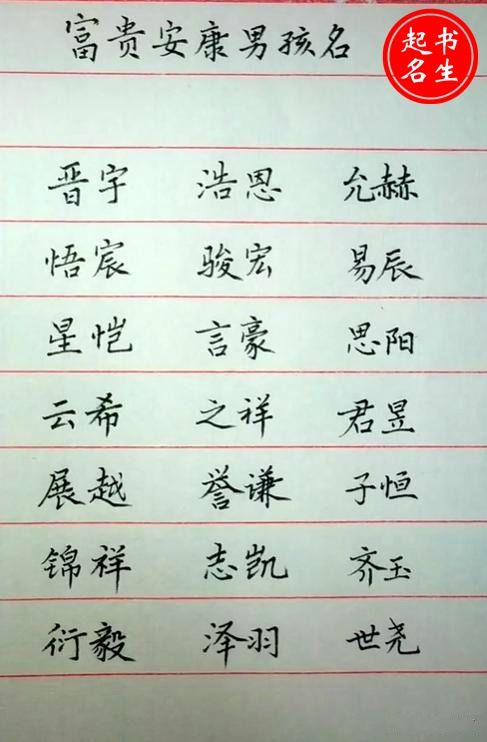 富贵安康男孩名
起书
名生
晋宇 浩恩 允赫
悟宸 骏宏 易辰
星恺 言豪 思阳
云希 之祥 君昱
展越 誉谦 子恒
锦祥 志凯 齐玉
衍毅 泽羽 世尧